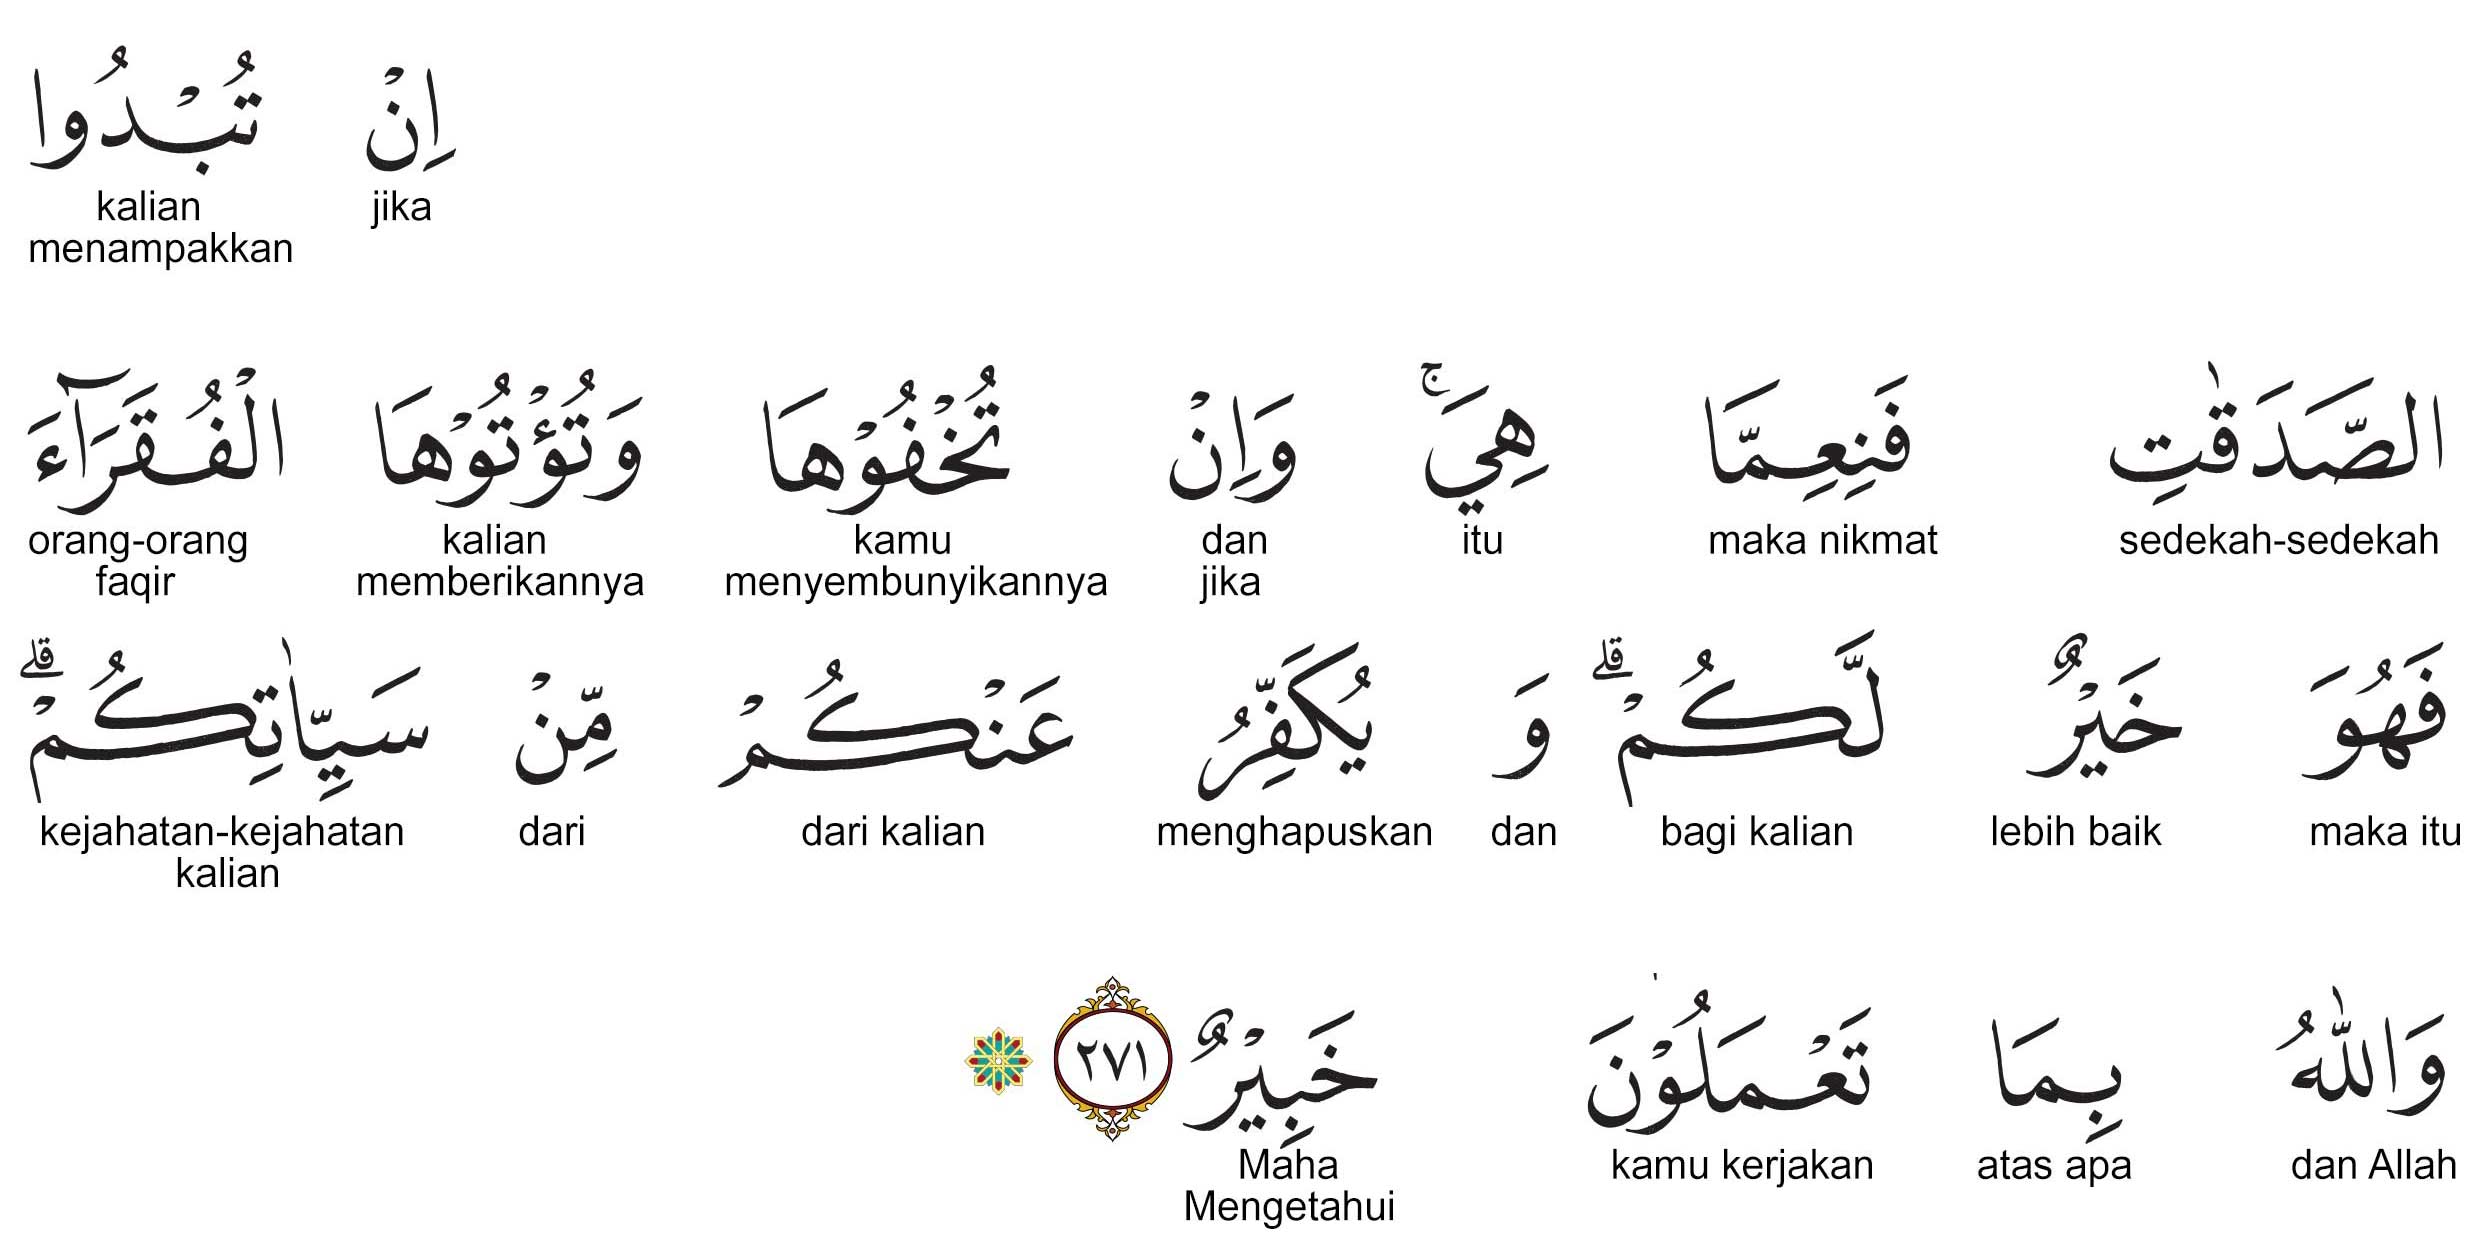 اِنْ تُبْدُوا
jika kalian menampakkan
الصَّدَقٰتِ فَنِعِمَّا هِيَۚ وَاِنْ تُخْفُوْهَا وَتُؤْتُوْهَا الْفُقَرَاۤءَ
sedekah-sedekah maka nikmat itu dan jika kamu menyembunyikannya kalian memberikannya orang-orang faqir
فَهُوَ خَيْرٌ لَّكُمْۗ وَ يُكَفِّرُ عَنْكُمْ مِّنْ سَيِّاٰتِكُمْۗ
maka itu lebih baik bagi kalian dan menghapuskan dari kalian dari kejahatan-kejahatan kalian
وَاللّٰهُ بِمَا تَعْمَلُوْنَ خَبِيْرٌ ٢٧١
dan Allah atas apa kamu kerjakan Maha Mengetahui